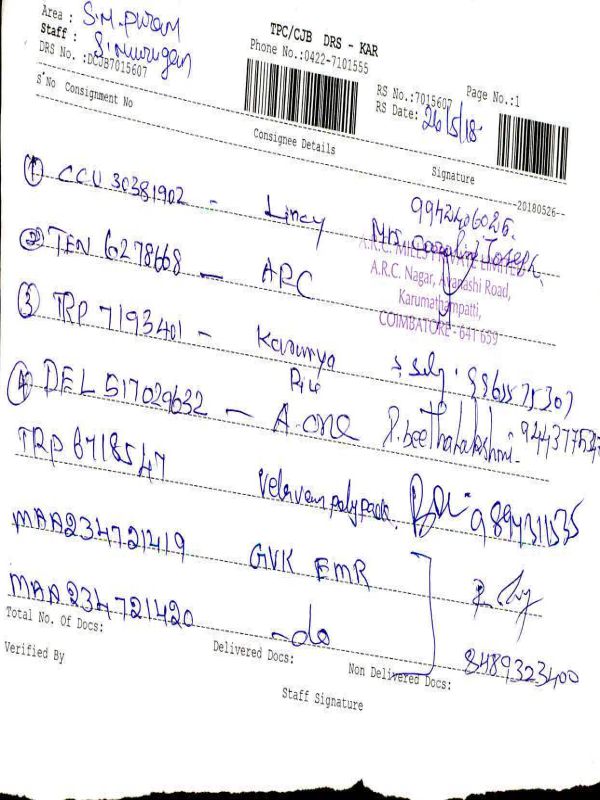 Area : S.M.Puram
Staff : S.Murugan
DRS No. :DCJB7015607
TPC/CJB DRS - KAR
Phone No.:0422-7101555
RS No.:7015607 Page No.:1
RS Date: 26/5/18
S'No Consignment No Consignee Details Signature
--20180526--
① CCU 30381902 - Lincy 9942406026.
② TEN 6278668 - ARC
A.R.C. Nagar, Avanashi Road,
Karumathampatti,
COIMBATORE - 641 659
③ TRP 7193401 - Karunya
④ DEL 517029632 - A.one
TRP 6718547 Velavan polypack
MAA234721419 GVK EMR
MAA234721420 -do
8489323400
Total No. Of Docs: Delivered Docs: Non Delivered Docs:
Verified By Staff Signature